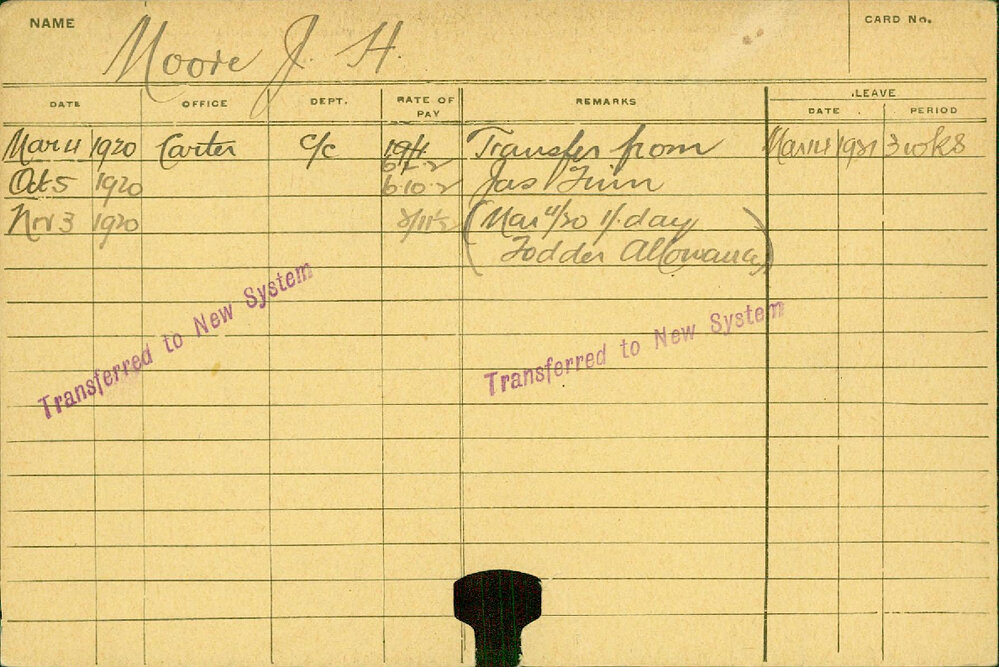 NAME Moore J. H. CARD No.
DATE OFFICE DEPT. RATE OF PAY REMARKS LEAVE
DATE PERIOD
Mar 4 1920 Carter C/C Transfer from Mar 14 1921 3 wks
Oct 5 1920 6.10.2 Jas Finn
Nov 3 1920 (Mar 4/20 1/. day
Fodder Allowance)
Transferred to New System
Transferred to New System